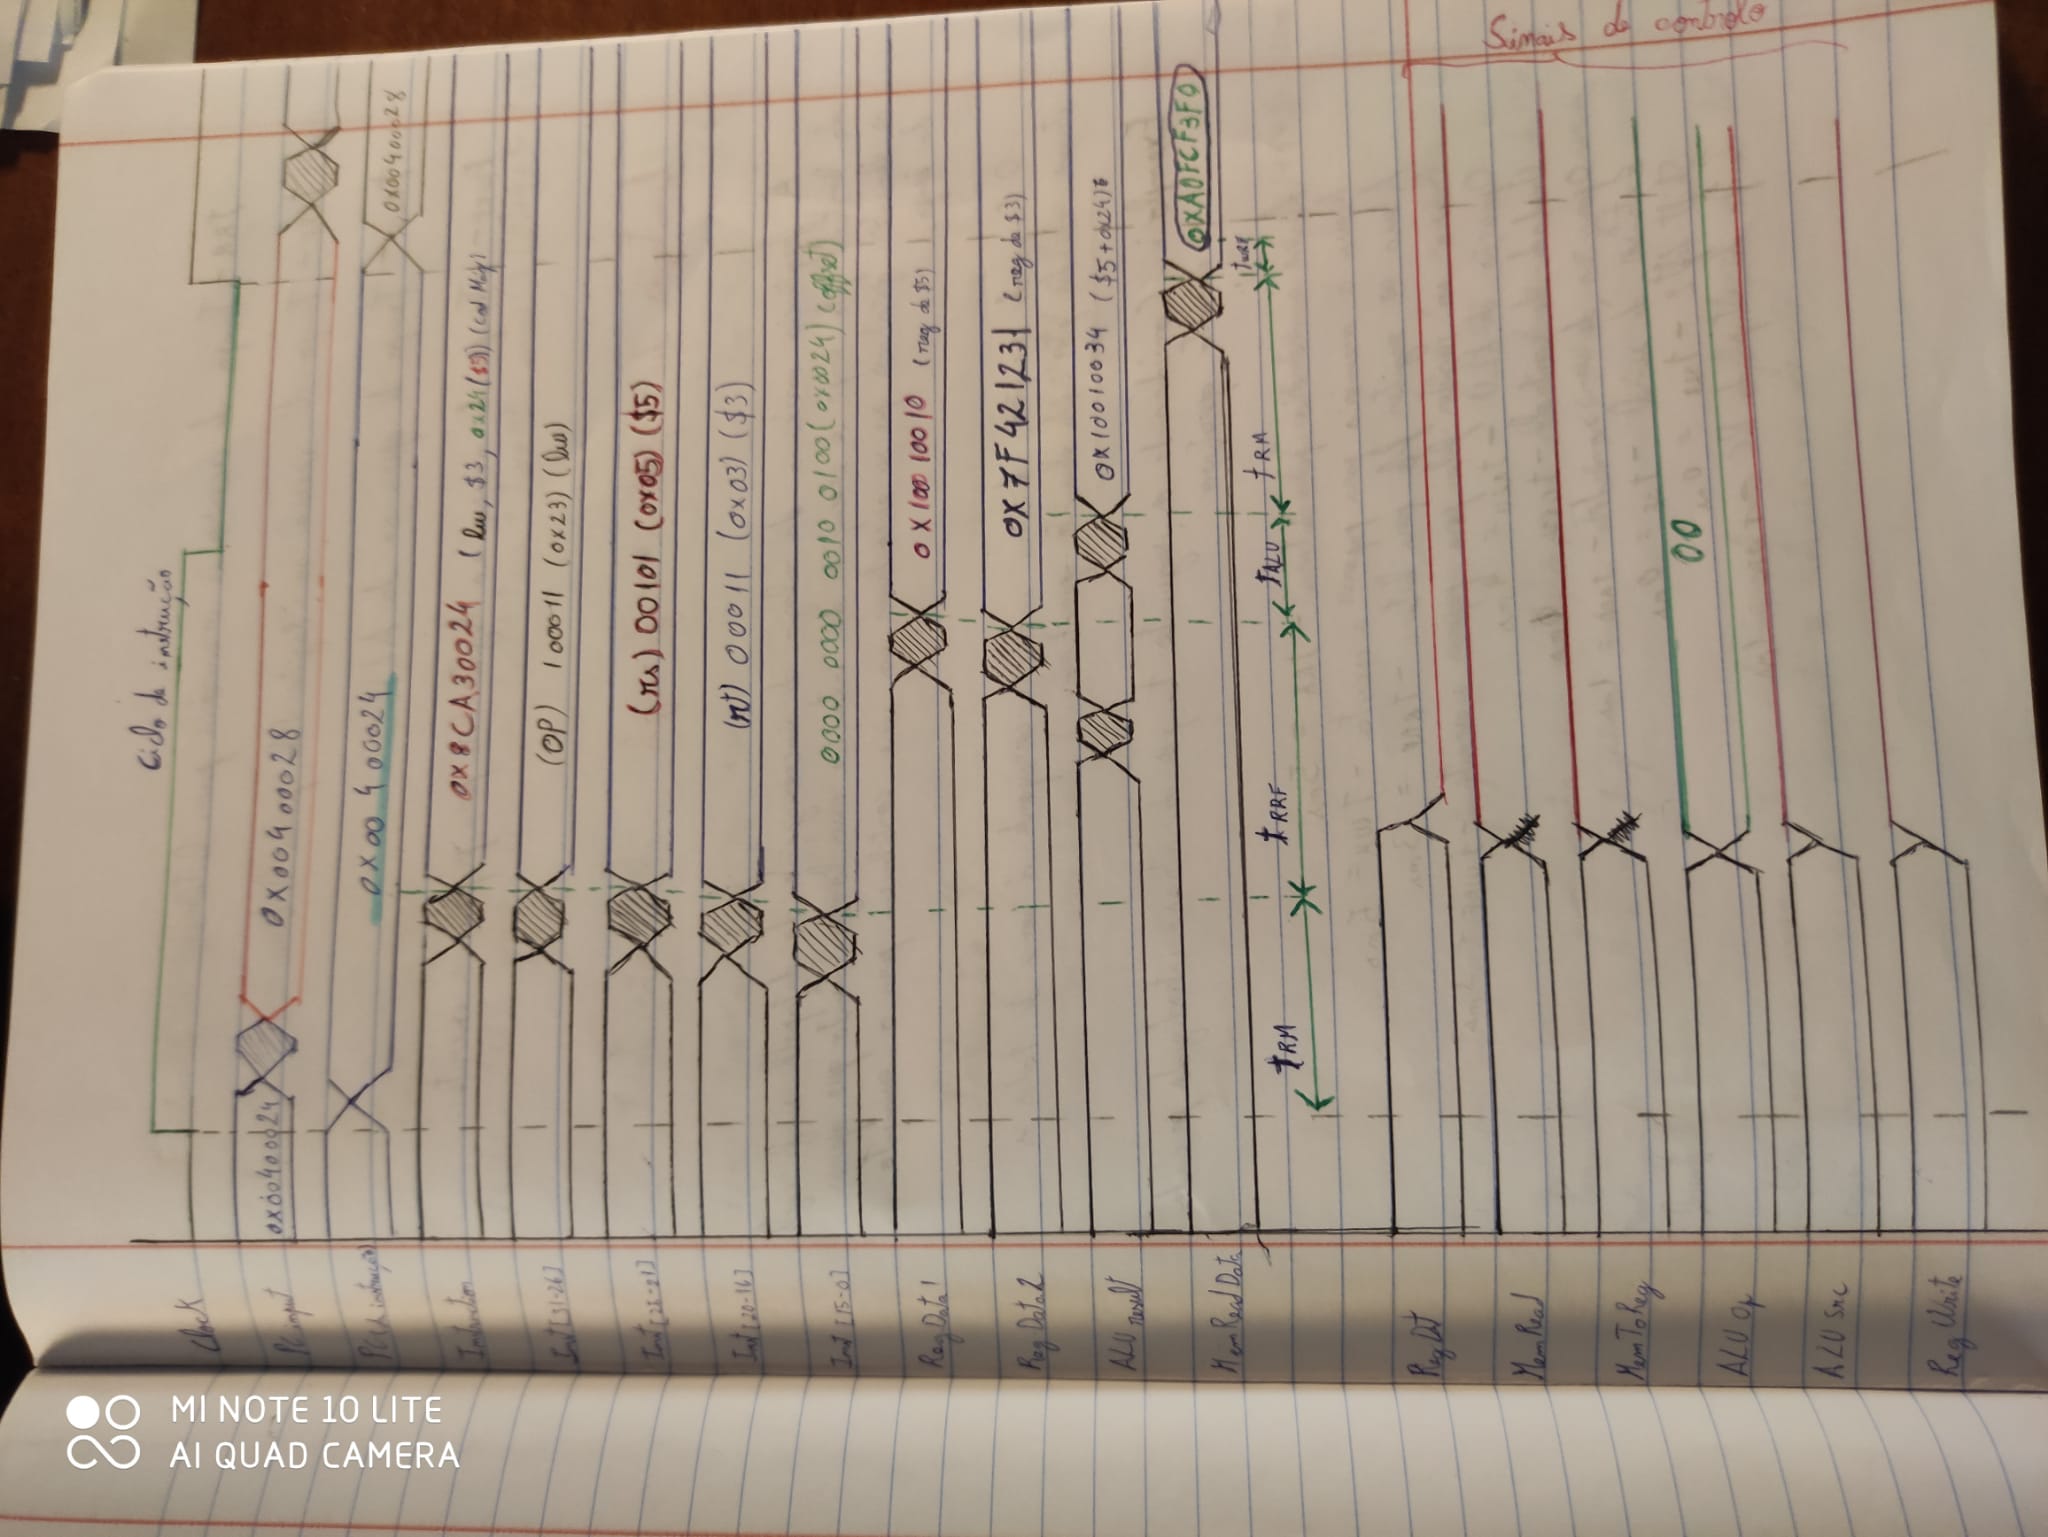 Ciclo de instrução
Clock
PC input 0x00400024 0x00400028
PC (instrução) 0x00400024 0x00400028
Instruction 0x8CA30024 (lw, $3, 0x24($5)) (cod Máq)
Inst [31-26] (OP) 100011 (0x23) (lw)
Inst [25-21] (rs) 00101 (0x05) ($5)
Inst [20-16] (rt) 00011 (0x03) ($3)
Inst [15-0] 0000 0000 0010 0100 (0x0024) (offset)
Reg Data1 0x10010010 (reg de $5)
Reg Data2 0x7F421231 (reg de $3)
ALU result 0x10010034 ($5+0x24)
Mem Read Data 0xA0FCF3F0
tRM tRRF tALU tRM tWRF
Reg Dst
Mem Read
Mem To Reg
ALU Op 00
ALU Src
Reg Write
Sinais de controlo
MI NOTE 10 LITE
AI QUAD CAMERA